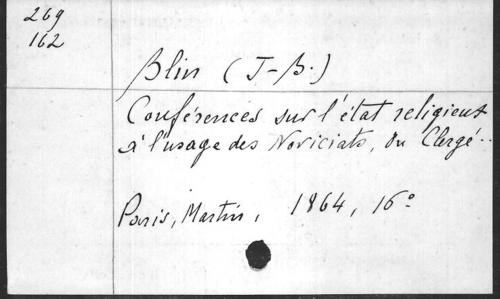 269
162
Blin (J-B.)
Conférences sur l'état religieux
à l'usage des Noviciats, du Clergé..
Paris, Martin, 1864, 16°